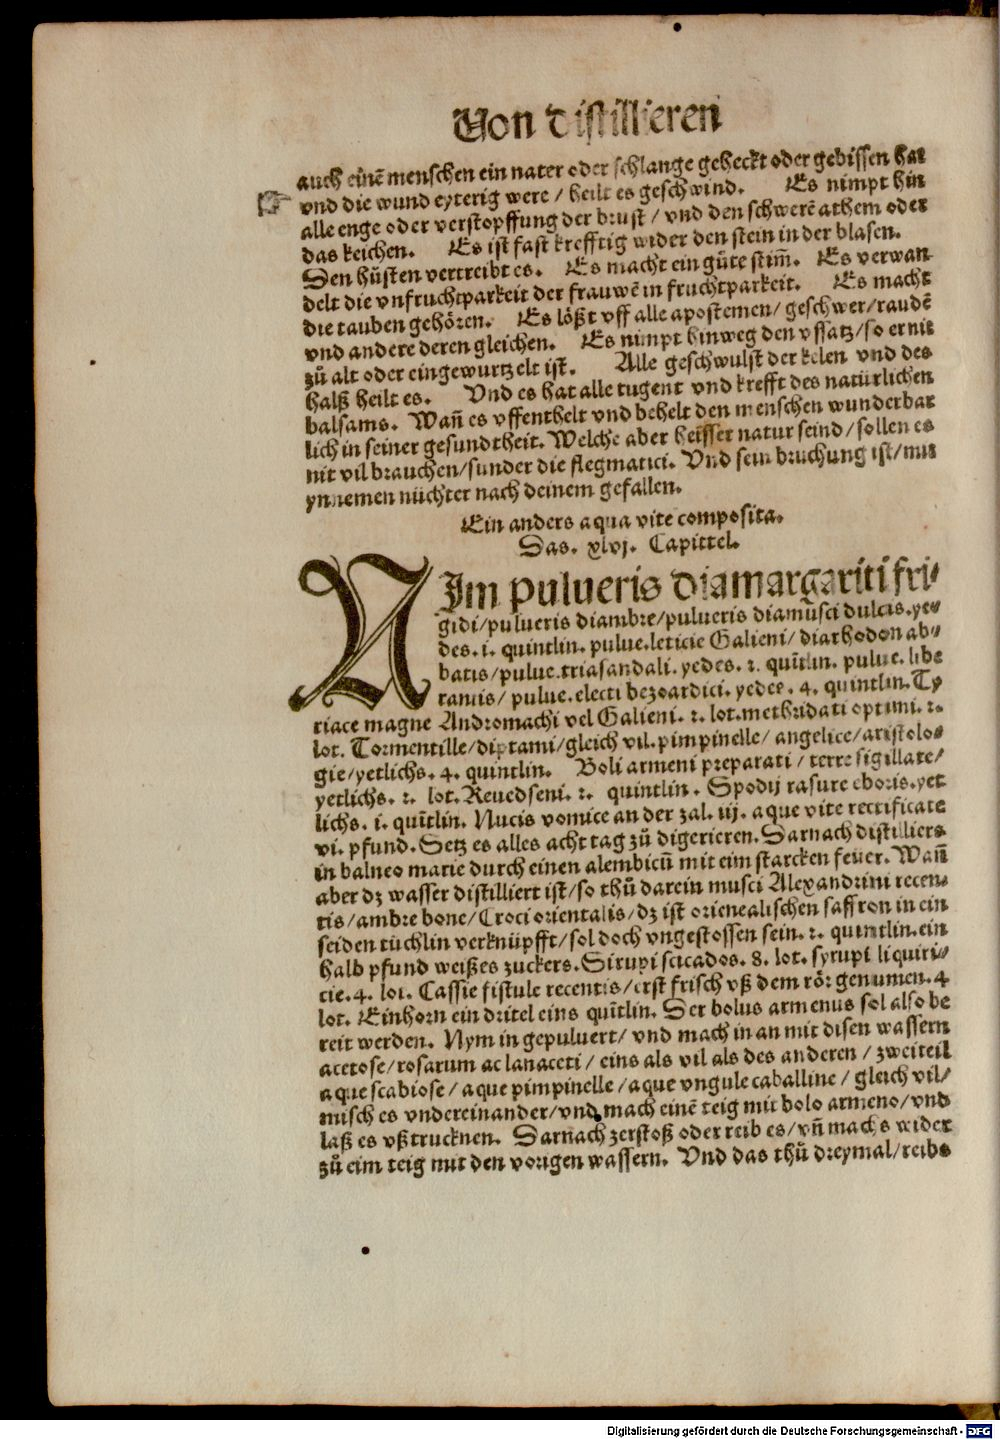 Von distillieren
auch einē menschen ein nater oder schlange geheckt oder gebissen hat
vnd die wund eyterig were / heilt es geschwind. Es nimpt hin
alle enge oder verstopffung der brust / vnd den schwerē athem oder
das keichen. Es ist fast krefftig wider den stein in der blasen.
Den hůsten vertreibt es. Es macht ein gůte stim̄. Es verwan
delt die vnfruchtparkeit der frauwē in fruchtparkeit. Es macht
die tauben gehören. Es lößt vff alle apostemen / geschwer / raudē
vnd andere deren gleichen. Es nimpt hinweg den vssatz / so er nit
zů alt oder eingewurtzelt ist. Alle geschwulst der kelen vnd des
halß heilt es. Vnd es hat alle tugent vnd krefft des natürlichen
balsams. Wan̄ es vffenthelt vnd behelt den menschen wunderbar
lich in seiner gesundtheit. Welche aber heisser natur seind / sollen es
nit vil brauchen / sunder die flegmatici. Vnd sein bruchung ist / mit
ynnemen nüchter nach deinem gefallen.
Ein anders aqua vite composita.
Das. xlvj. Capittel.
NIm pulueris diamargariti fri⸗
gidi / pulueris diambre / pulueris diamusci dulcis. ye⸗
des. i. quintlin. pulue. leticie Galieni / diarhodon ab⸗
batis / pulue. triasandali. yedes. 2. quītlin. pulue. libe
rantis / pulue. electi bezoardici. yedes. 4. quintlin. Ty
riace magne Andromachi vel Galieni. 2. lot. methridati optimi. 2.
lot. Tormentille / diptami / gleich vil. pimpinelle / angelice / aristolo⸗
gie / yetlichs. 4. quintlin. Boli armeni preparati / terre sigillate /
yetlichs. 2. lot. Reuedseni. 2. quintlin. Spodij rasure eboris. yet
lichs. i. quītlin. Nucis vomice an der zal. iij. aque vite rectificate
vi. pfund. Setz es alles acht tag zů digerieren. Darnach distilliers
in balneo marie durch einen alembicū mit eim starcken feuer. Wan̄
aber dz wasser distilliert ist / so thů darein musci Alexandrini recen⸗
tis / ambre bone / Croci orientalis / dz ist orienealischen saffron in ein
seiden tüchlin verknüpfft / sol doch vngestossen sein. 2. quintlin. ein
halb pfund weißes zuckers. Sirupi scicados. 8. lot. syrupi liquiri⸗
cie. 4. lot. Cassie fistule recentis / erst frisch vß dem rör genumen. 4
lot. Einhorn ein dritel eins quītlin. Der bolus armenus sol also be
reit werden. Nym in gepuluert / vnd mach in an mit disen wassern
acetose / rosarum ac lanaceti / eins als vil als des anderen / zweiteil
aque scabiose / aque pimpinelle / aque vngule caballine / gleich vil /
misch es vndereinander / vnd mach einē teig mit bolo armeno / vnd
laß es vß trucknen. Darnach zerstoß oder reib es / vn̄ machs wider
zů eim teig mit den vorigen wassern. Vnd das thů dreymal / reibs
Digitalisierung gefördert durch die Deutsche Forschungsgemeinschaft - DFG